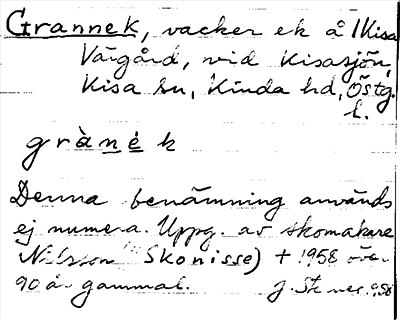 Grannek, vacker ek å Kisa
Vårgård, vid Kisasjön,
Kisa sn, Kinda hd, Östg.
l.
grànék
Denna benämning används
ej numera. Uppg. av skomakare
Nilsson Skonisse) † 1958 över
90 år gammal.